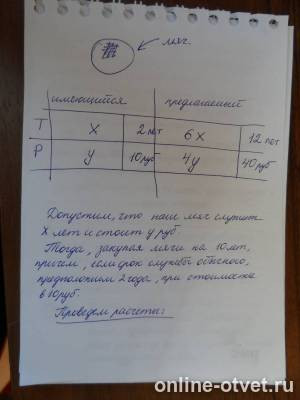 мяч.
имеющийся предлагаемый
T x 2 лет 6x 12 лет
P y 10 руб 4y 40 руб
Допустим, что наш мяч служит
x лет и стоит y руб.
Тогда, закупая мячи на 10 лет,
причем, если срок службы обычного,
предположим 2 года, при стоимости
в 10 руб.
Проведем расчеты:
online-otvet.ru